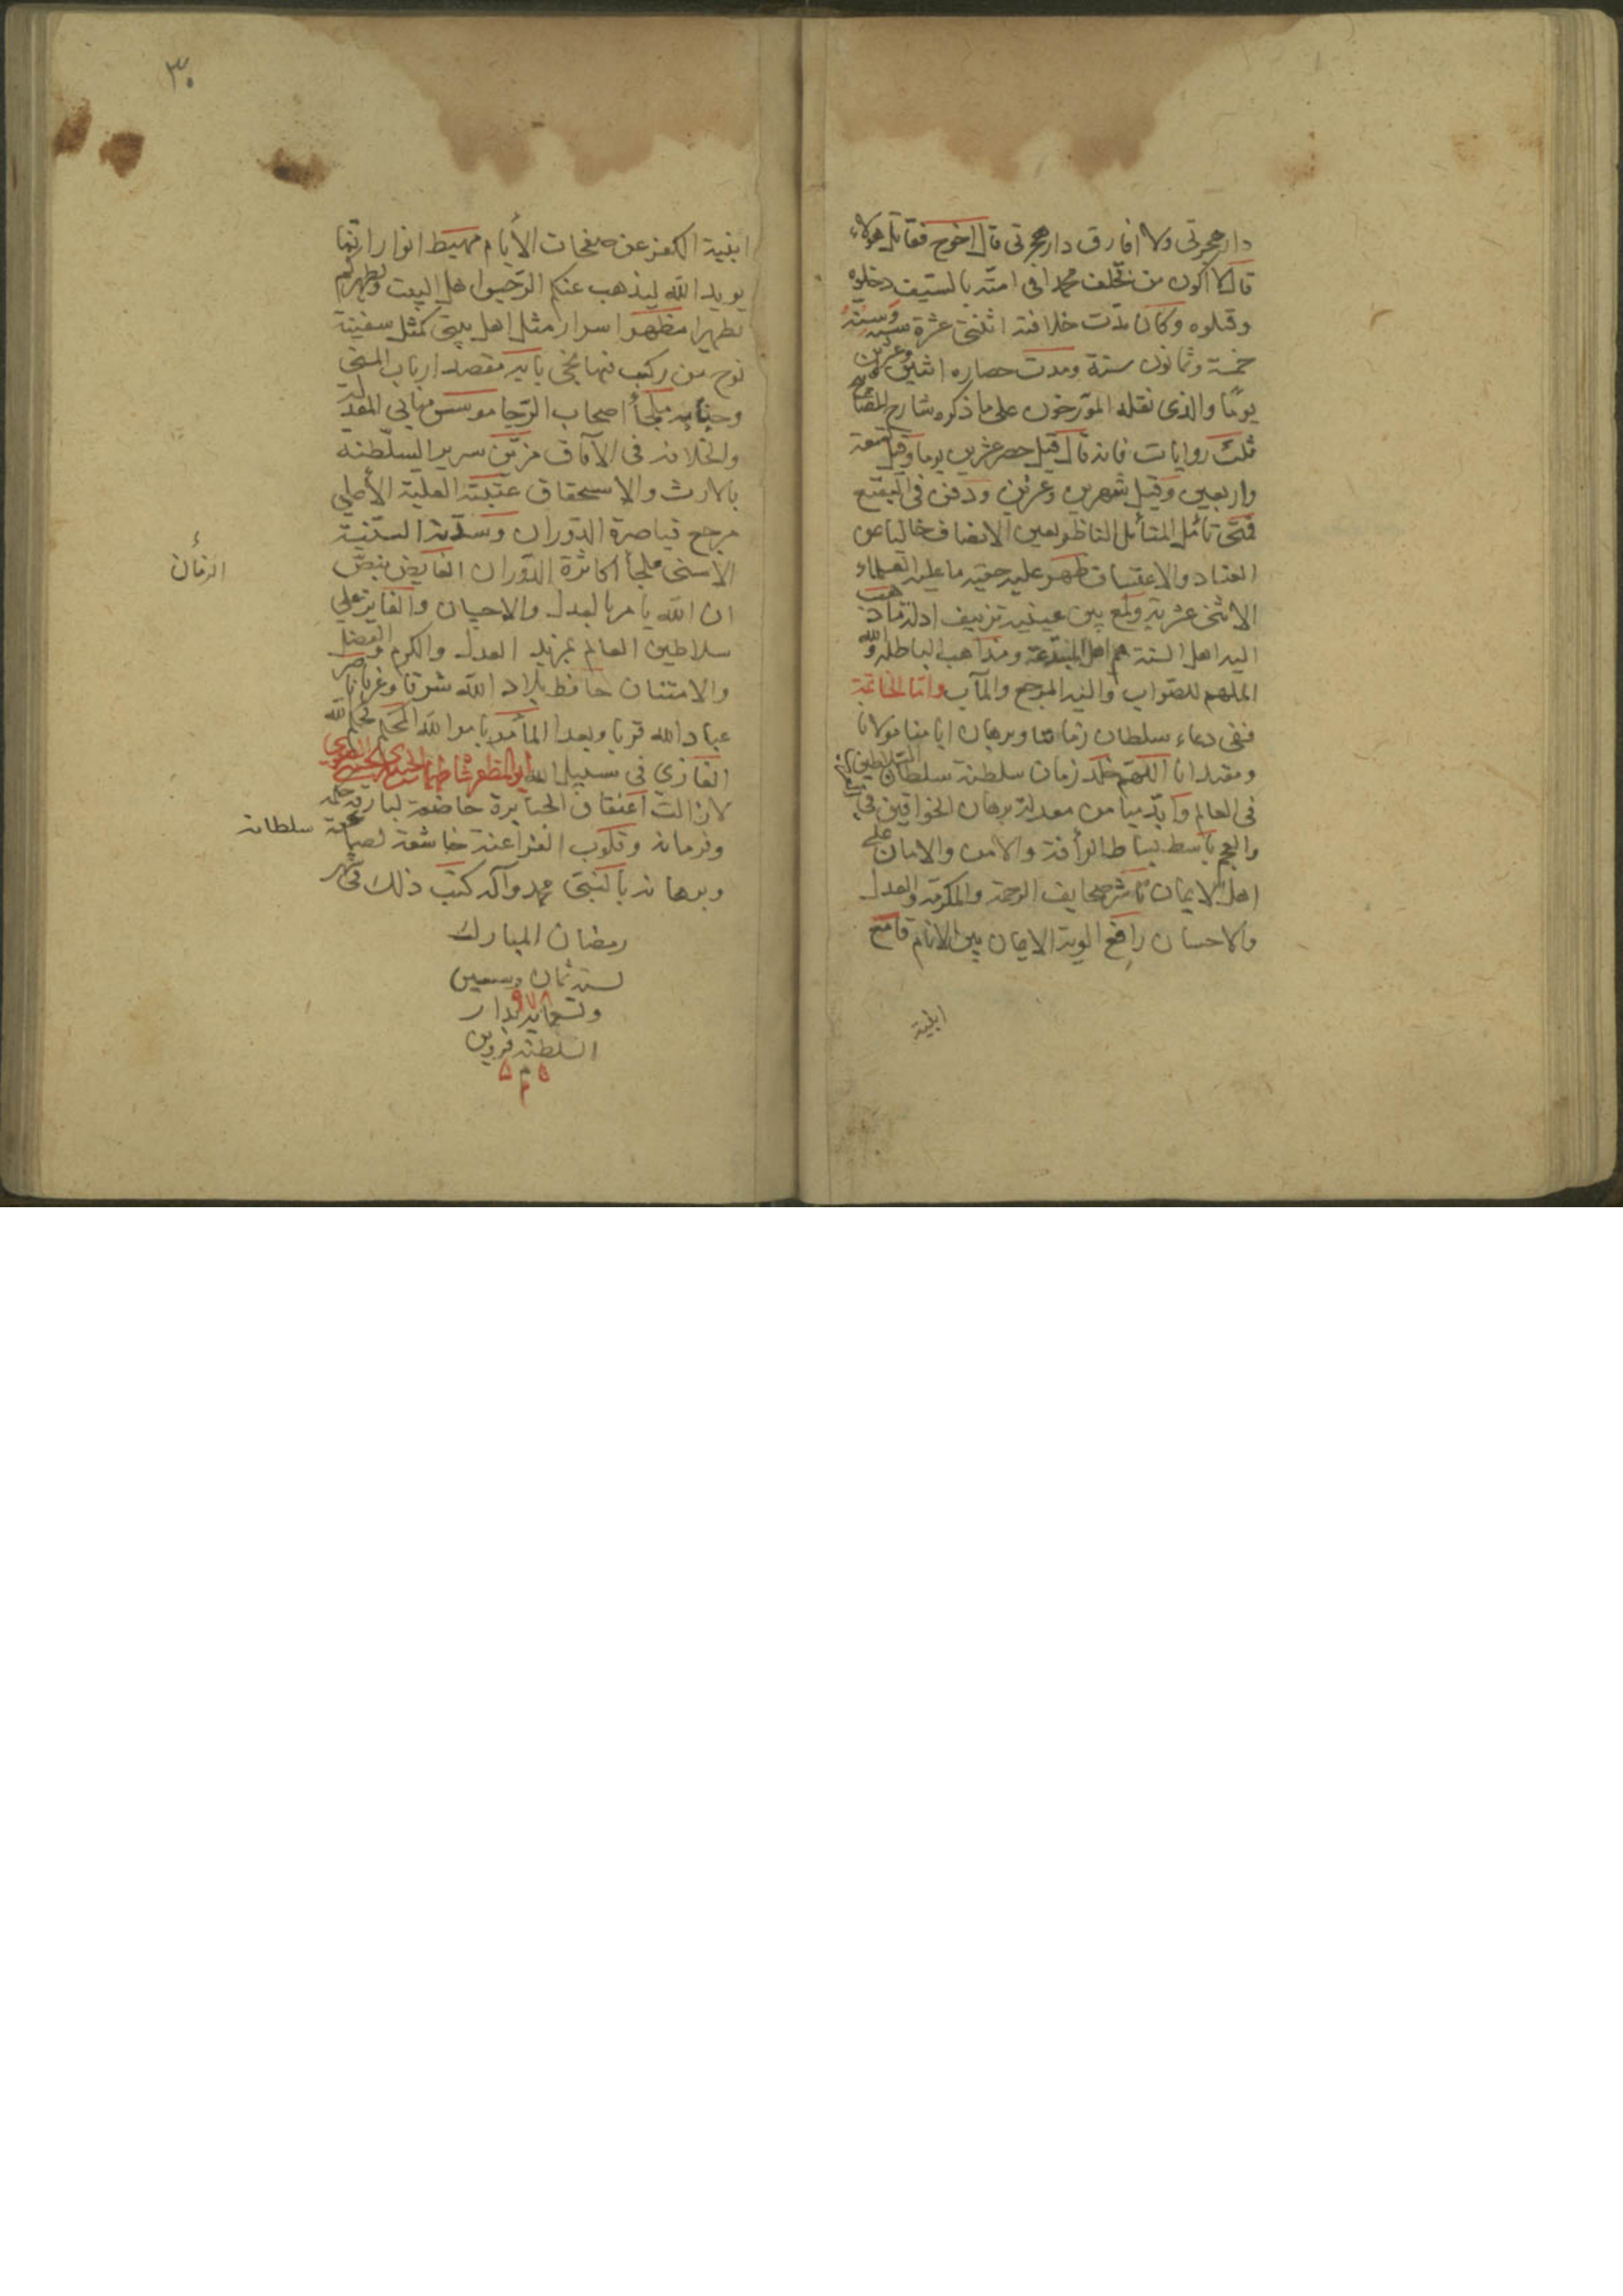 دار هجرتي ولا افارق دار هجرتي قال اخرج فقاتل هؤلاء
قال لا اكون من تخلف محمدا في امته بالسيف دخلوه
وقتلوه وكان مدت خلافته اثنتى عشرة سنة وسنه
خمسة وثمانون سنة ومدت حصاره اثنين وعشرين
يومًا والذى نقله المورّخون على ما ذكره شارح المصابيح
ثلث روايات فانه قال قيل حصر عشرين يوما وقيل تسعة
واربعين وقيل شهرين وعشرين ودفن في البقيع
فمتى تأمل المتأمل الناظر بعين الانصاف خاليا عن
العناد والاعتساف ظهر عليه حقية ما عليه العلماء
الاثنى عشرية ولمع بين عينيه تزييف ادلة ما ذهب
اليه اهل السنة هم اهل البدعة ومذاهب الباطلة والله
الملهم للصواب واليه المرجع والمآب واما الخاتمة
ففى دعاء سلطان زماننا وبرهان ايامنا مولانا
ومقتدانا اللهم خلد زمان سلطنة سلطان السلاطين
فى العالم وأيد ميامن معدلة برهان الخواقين في
والعجم باسط بساط الرأفة والامن والامان على
اهل الايمان ناشر صحايف الرحمة والمكرمة والعدل
والاحسان رافع الوية الايمان بين الانام قامع
ابنية
٣٠
ابنية الكفر عن صفحات الأيام مهبط انوار انما
يريد الله ليذهب عنكم الرجس اهل البيت ويطهركم
تطهيرا مظهر اسرار مثل اهل بيتى كمثل سفينة
نوح من ركب فيها نجى بابه مقصد ارباب المنى
وجنابه ملجأ اصحاب الرجا موسس مبانى المعدلة
والخلافة فى الآفاق مزيّن سرير السلطنة
بالارث والاستحقاق عتبته العلية الأعلى
مرجع قياصرة الدوران وسدته السنية
الأسنى ملجأ اكاسرة الدوران الفايض بنص
الزمان
ان الله يأمر بالعدل والاحسان والفايز على
سلاطين العالم بمزيد العدل والكرم والفضل
والامتنان حافظ بلاد الله شرقا وغربا ناصر
عباد الله قربا وبعدا المأمور بامر الله المحكم بحكم الله
الغازي فى سبيل الله ابو المظفر شاه طهماسب
لازالت اعناق الجبابرة خاضعة لبارقة
وفرمانه وقلوب الفراعنة خاشعة سلطانه
وبرهانه بالنبى محمد وآله كتب ذلك في شهر
رمضان المبارك
لسنة ثمان وسبعين
٩٧٨
وتسعمايه بدار
السلطنة قزوين
م